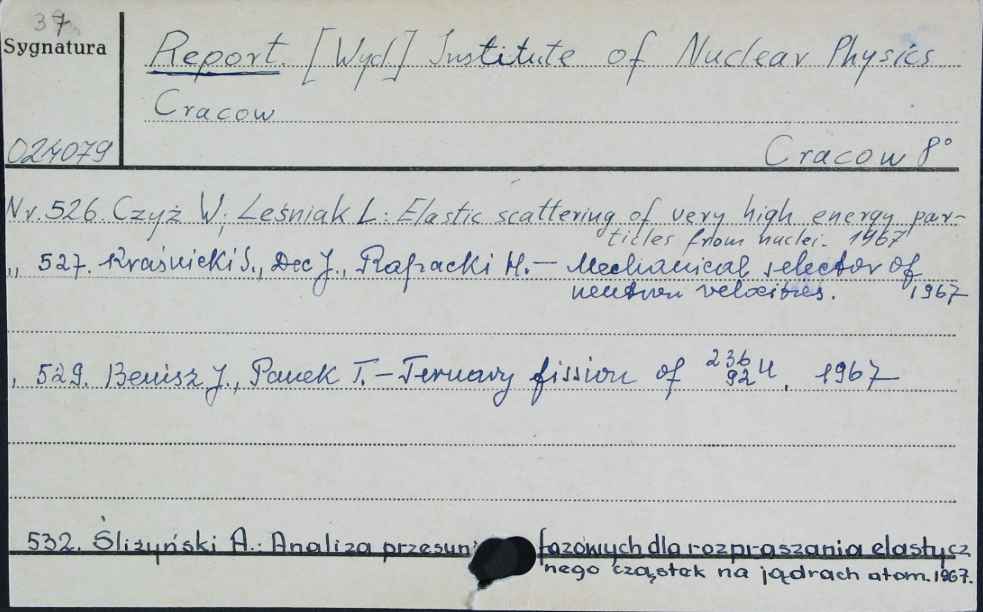 37
Sygnatura
Report. [Wyd] Institute of Nuclear Physics
Cracow
024079
Cracow 8°
Nr. 526 Czyż W; Leśniak L: Elastic scattering of very high energy par-
ticles from nuclei. 1967
„ 527. Kraśnicki S., Dec J., H. — Mechanical selector of
neutron velocities. 1967
„ 529. Benisz J., Panek T. — Ternary fission of 236 92 U. 1967
532. Śliżyński A.: Analiza przesuni fazowych dla rozpraszania elastycz
nego cząstek na jądrach atom. 1967.